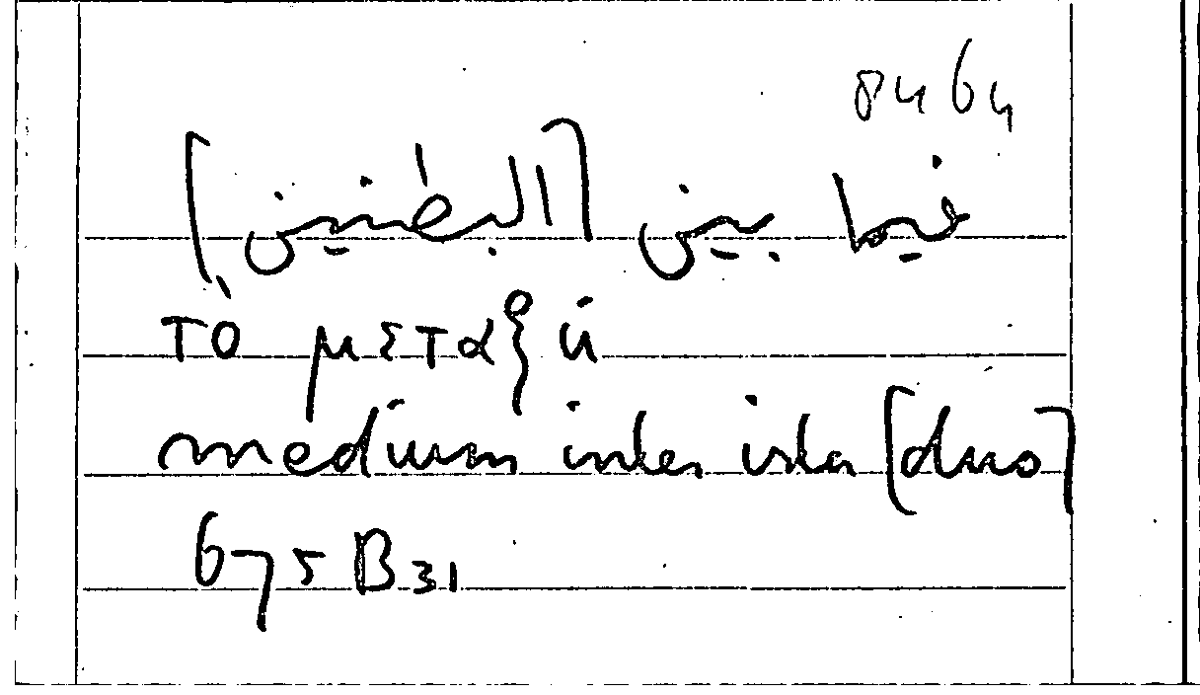 8464
فيما بين [البطنين]
τὸ μεταξύ
medium inter ista [duo]
675 B 31